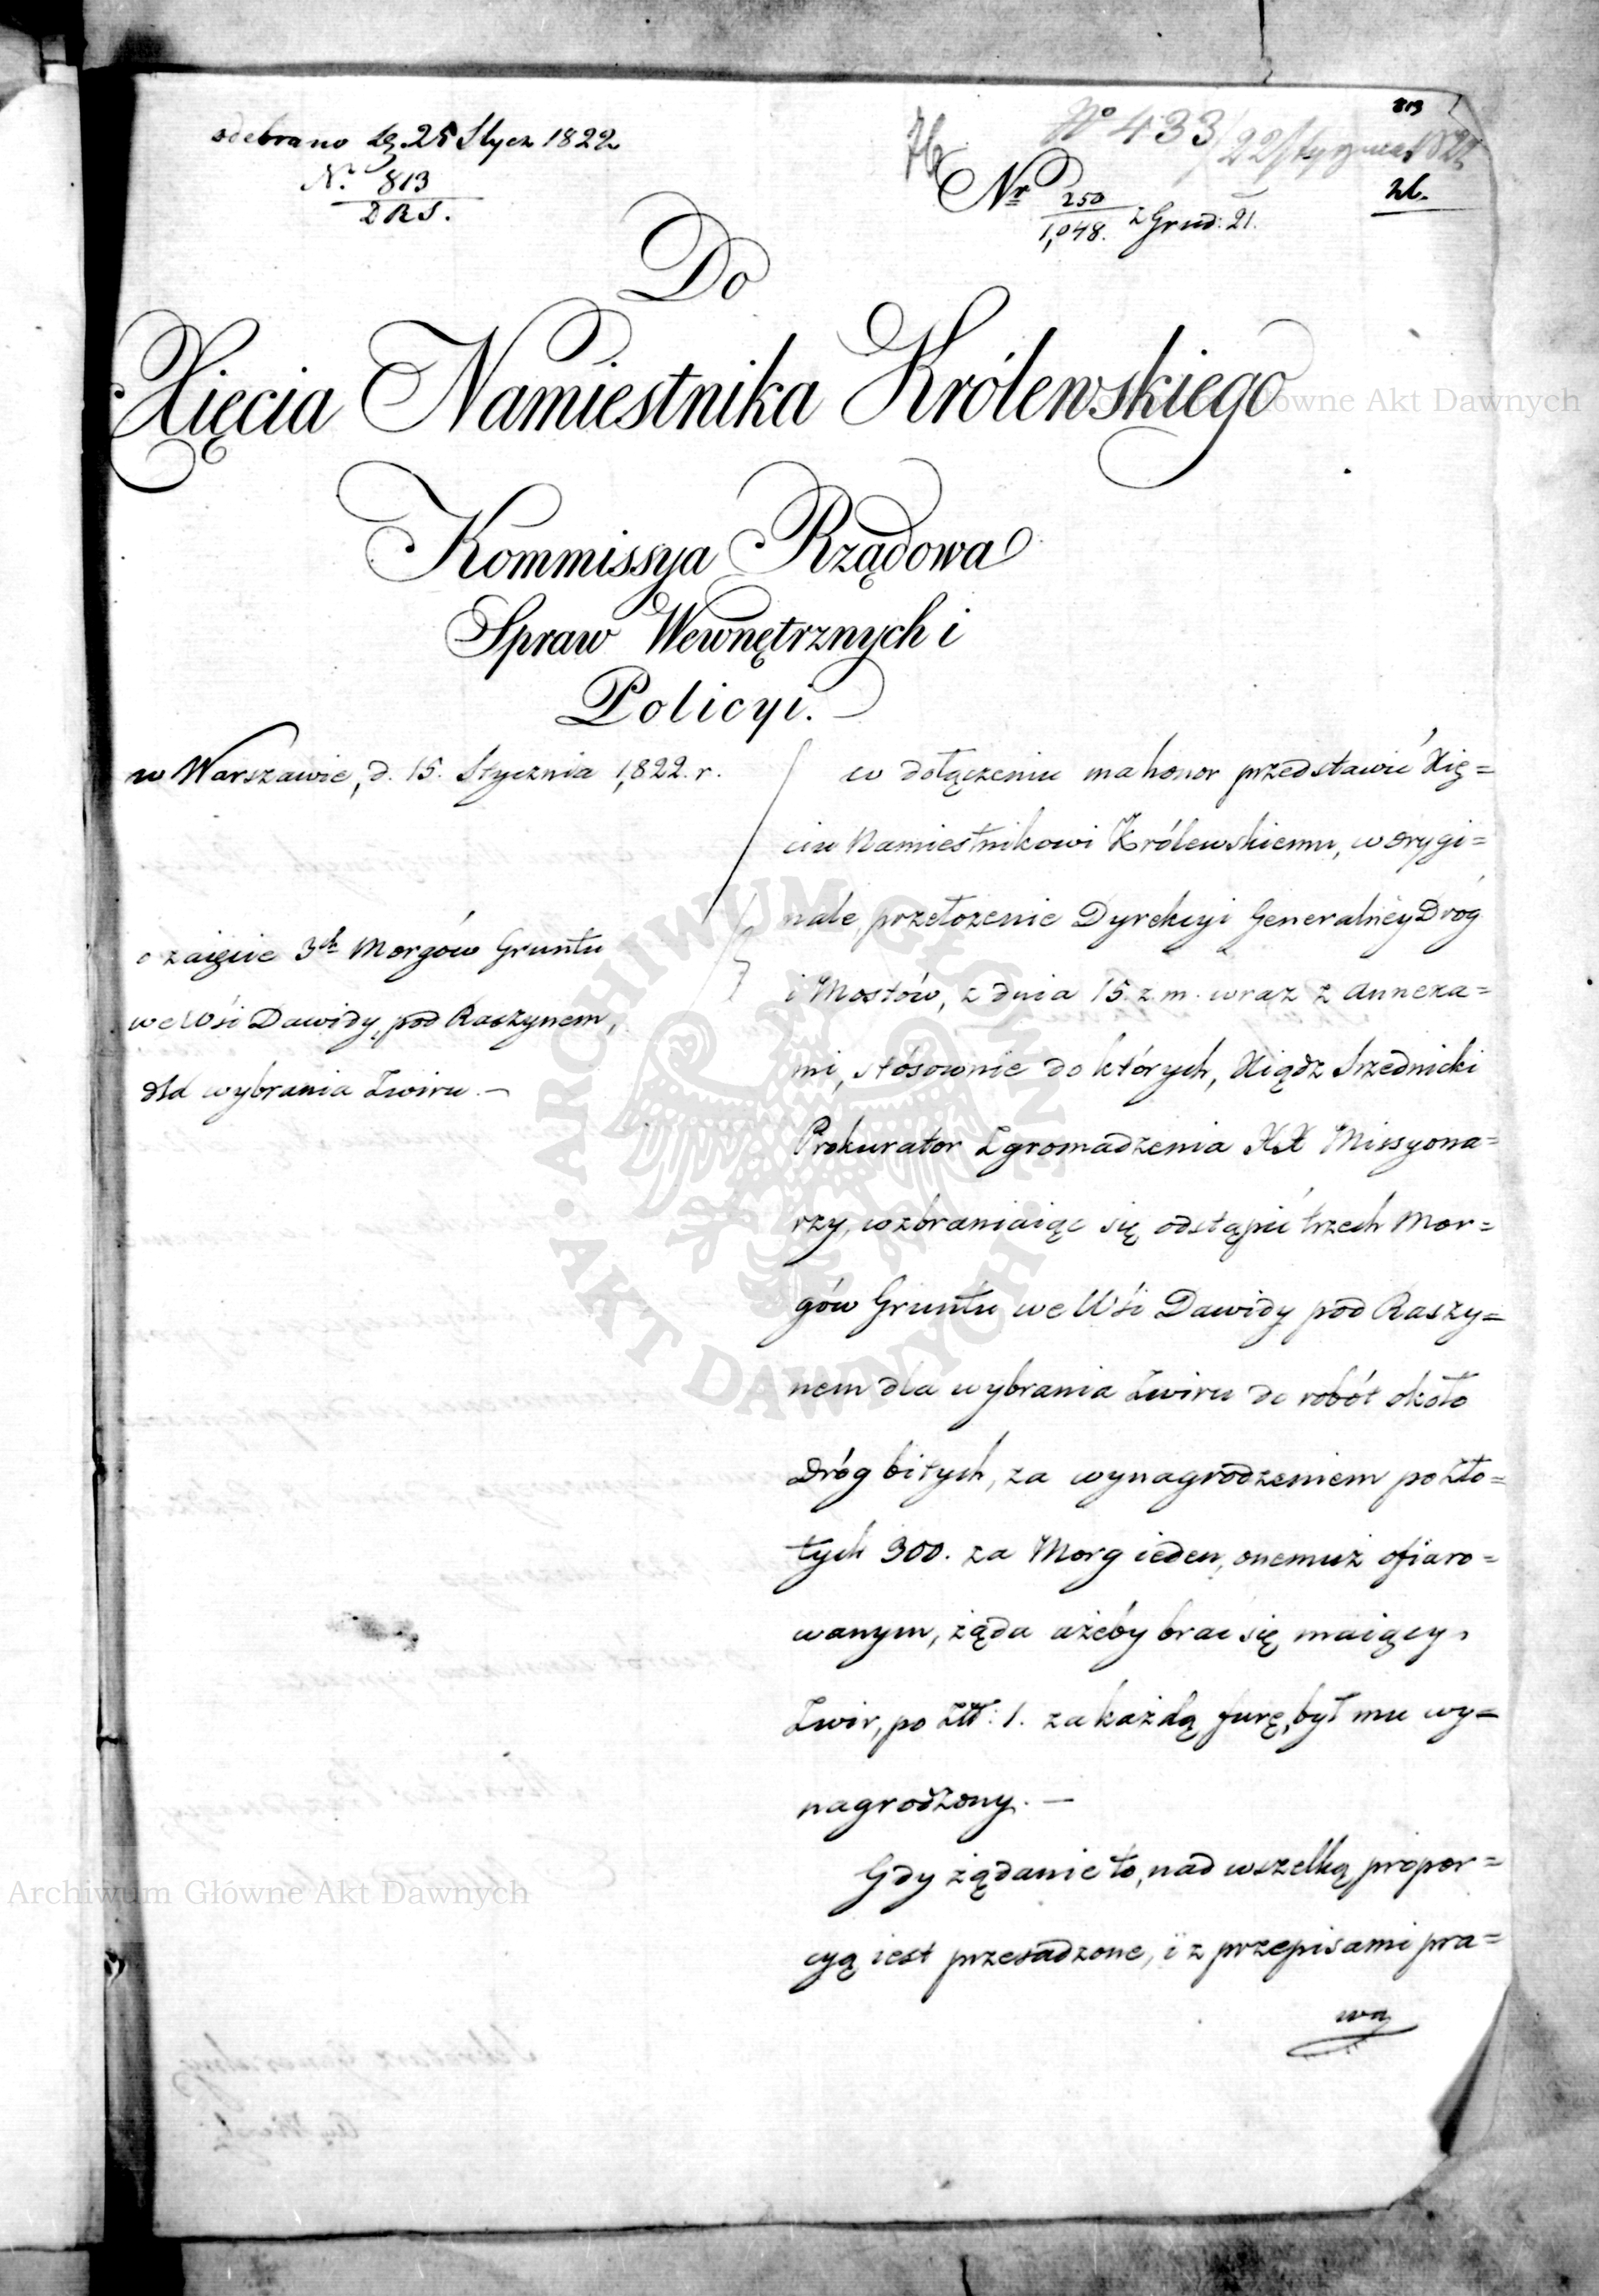 odebrano dz. 25 Stycz 1822
N. 813
D R S.
813
No 433/22 Stycznia 1822
Nr 250
1,048. z Grud: 21.
Do
Xięcia Namiestnika Królewskiego
Kommissya Rządowa
Spraw Wewnętrznych i
Policyi.
w Warszawie, d. 15. Stycznia 1,822. r.
o zaięcie 3ch Morgów Gruntu
we Wsi Dawidy, pod Raszynem,
dla wybrania Zwiru. —
w dołączeniu ma honor przedstawić Xię=
ciu Namiestnikowi Królewskiemu, w orygi=
nale, przełożenie Dyrekcyi Generalnéy Dróg
i Mostów, z dnia 15. z. m. wraz z Annexa=
mi, stósownie do których, Xiądz Srzednicki
Prokurator Zgromadzenia XX Missyona=
rzy, wzbraniaiąc się odstąpić trzech Mor=
gów Gruntu we Wśi Dawidy pod Raszy=
nem dla wybrania Zwiru do robót około
Dróg bitych, za wynagrodzeniem po Zło=
tych 300. za Morg ieden, onemuż ofiaro=
wanym, żąda ażeby brać się maiący
Zwir, po Złł: 1. za każdą furę, był mu wy=
nagrodzony. —
Gdy żądanie to, nad wszelką propor=
cyą iest przesadzone, i z przepisami pra=
wa
Archiwum Główne Akt Dawnych
ARCHIWUM GŁÓWNE AKT DAWNYCH
Archiwum Główne Akt Dawnych